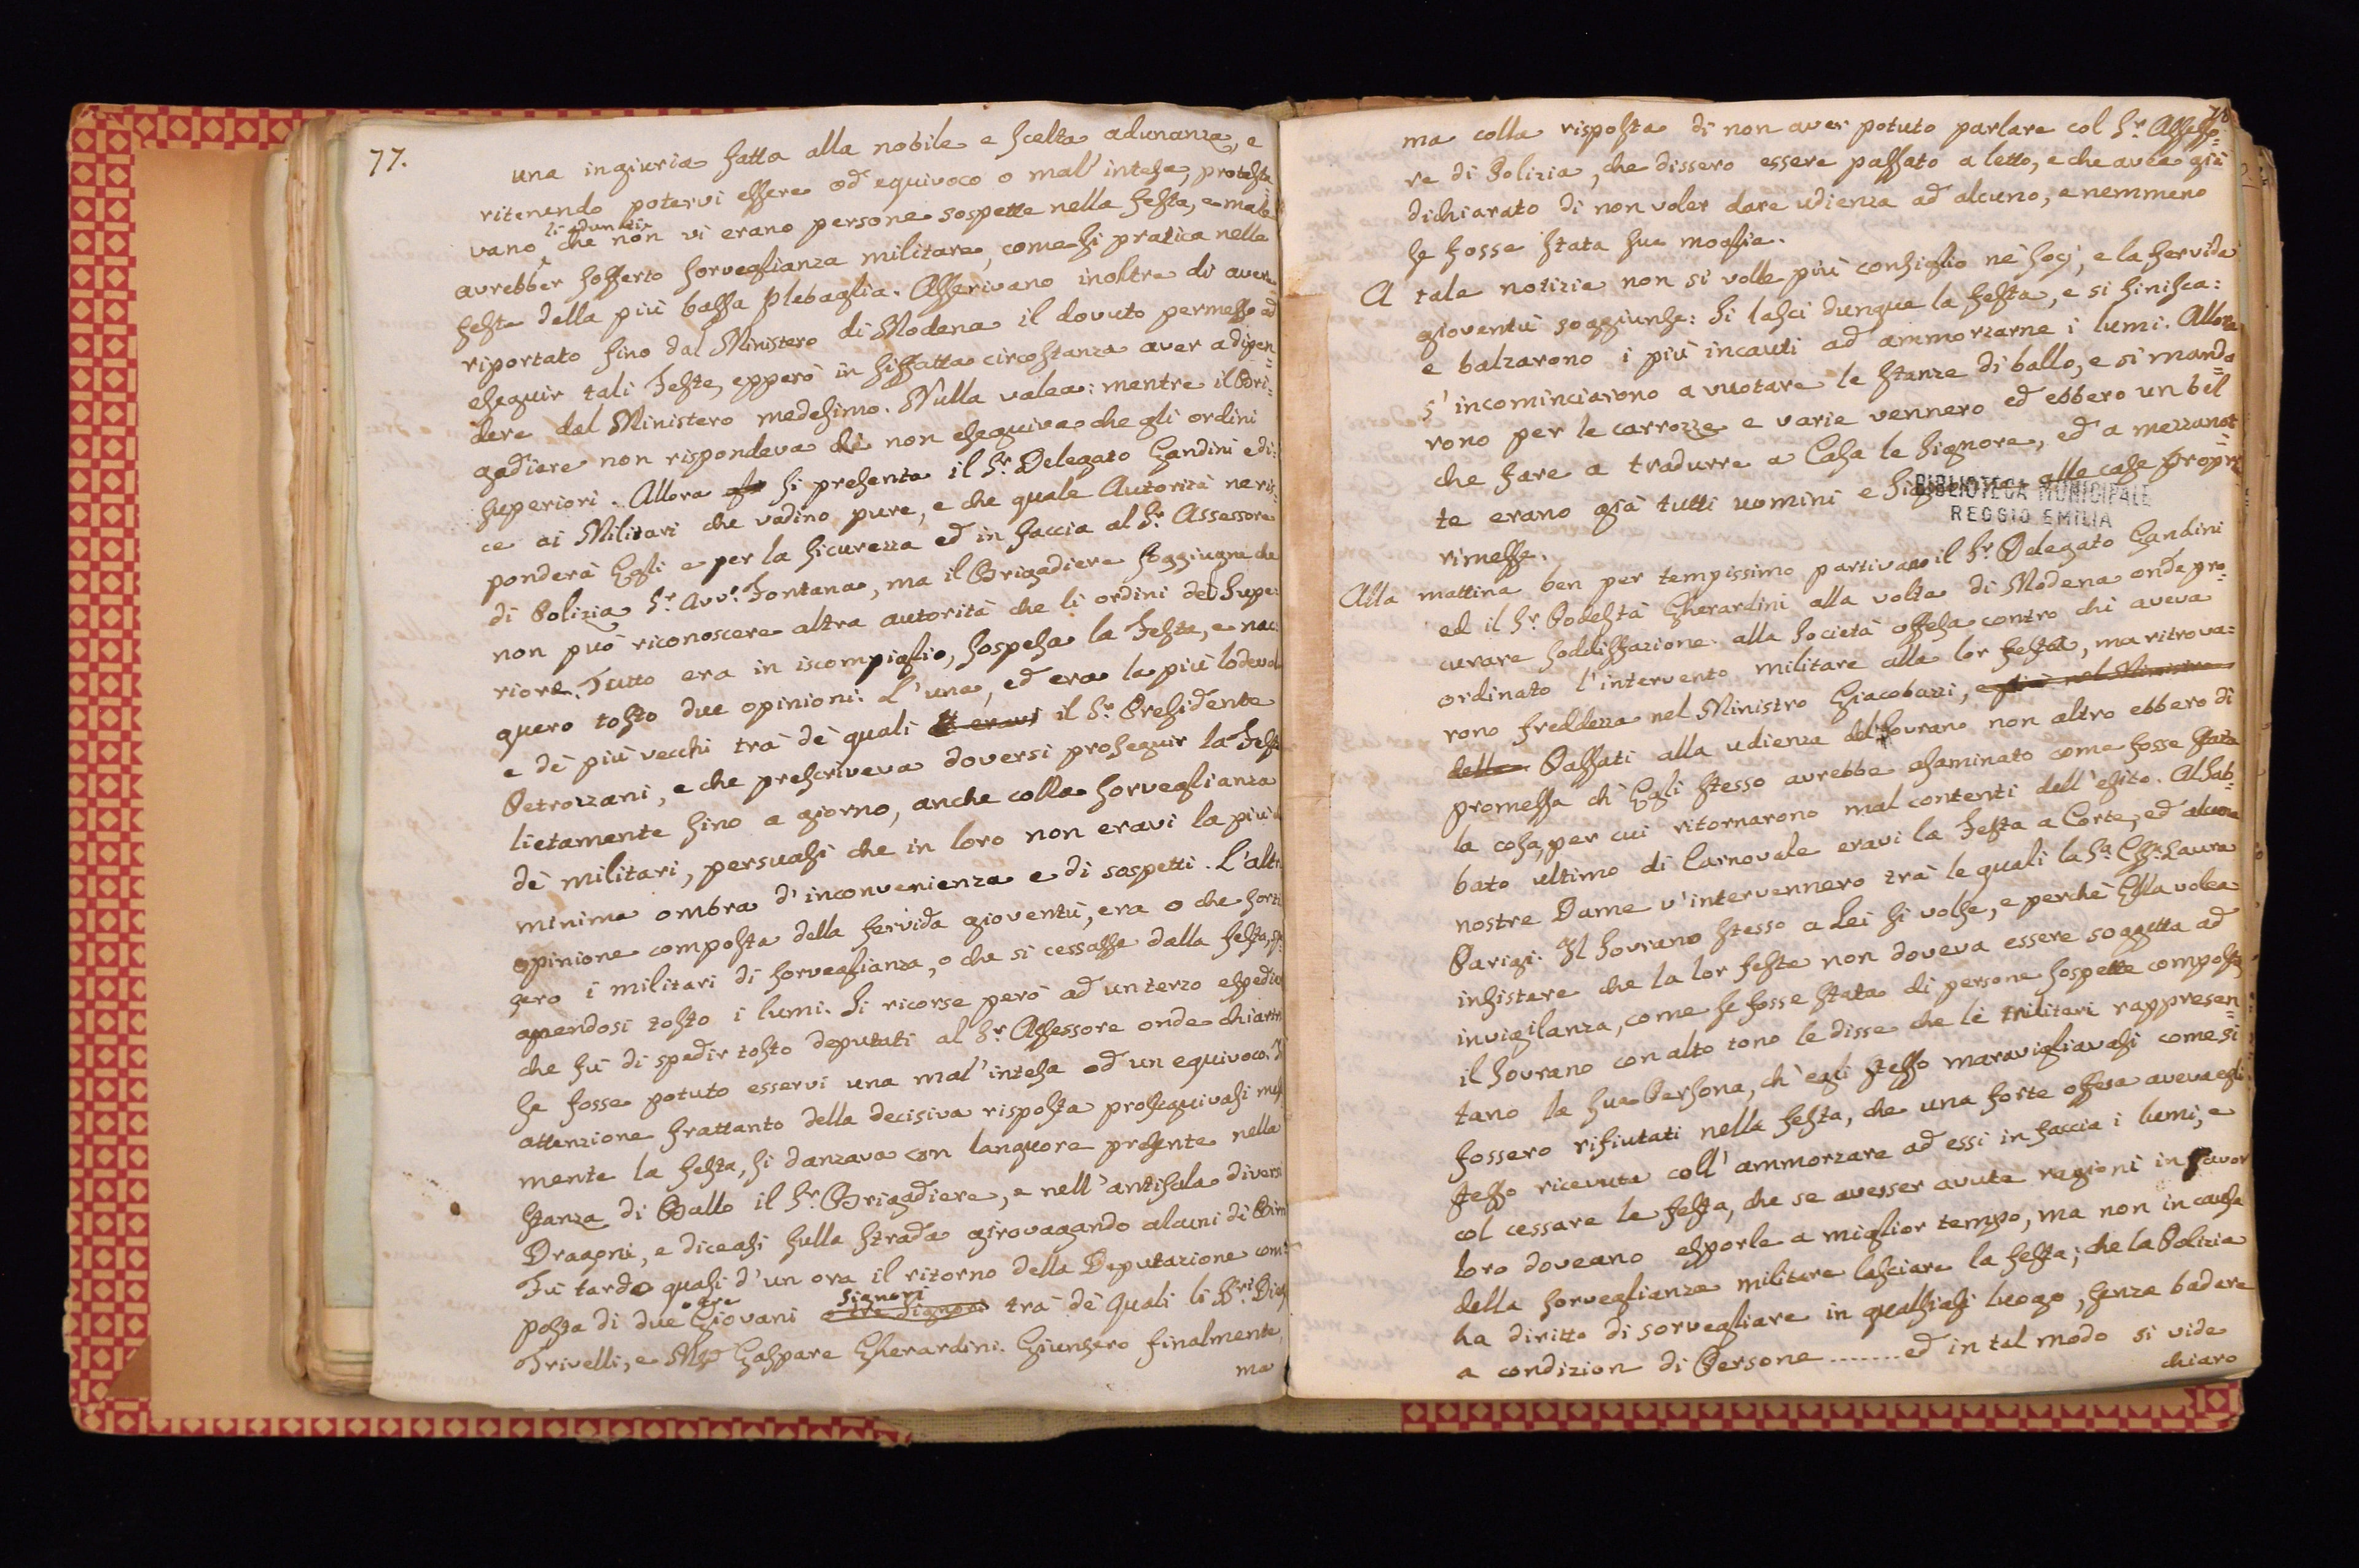 77.
una ingiuria fatta alla nobile e scelta adunanza, e
ritenendo potervi essere od equivoco o mal' inteso, protesta
vano che non vi erano persone sospette nella festa, e male
avrebber sofferto sorveglianza militare, come si pratica nelle
feste della più bassa plebaglia. Asserivano inoltre di avere
riportato fino dal Ministero di Modena il dovuto permesso ad
eseguir tali Feste, epperò in siffatta circostanza aver a dipen=
dere dal Ministero medesimo. Nulla valea: mentre il Bri=
gadiere non rispondeva che non eseguiva che gli ordini
superiori. Allora si presenta il Sr. Delegato Gandini e di=
ce ai Militari che vadino pure, e che quale Autorità ne ris=
ponderà Egli e per la sicurezza ed in faccia al Sr. Assessore
di Polizia Sr. Avv. Fontana, ma il Brigadiere soggiugne che
non può riconoscere altra autorità che li ordini del Supe=
riore. Tutto era in iscompiglio, sospesa la Festa, e nac=
quero tosto due opinioni: L'una, ed era la più lodevole
e dè più vecchi trà dè quali eravi il Sr. Presidente
Petrozzani, e che prescriveva doversi proseguir la Festa
lietamente sino a giorno, anche colla sorveglianza
dè militari, persuasi che in loro non eravi la più
minima ombra d'inconvenienza e di sospetti. L'altra
opinione composta della fervida gioventù, era o che sortis
sero i militari di sorveglianza, o che si cessasse dalla festa, spe
gnendosi tosto i lumi. Si ricorse però ad un terzo espedien
che fù di spedir tosto deputati al Sr. Assessore onde chiarir
se fosse potuto esservi una mal'intesa od un equivoco. In
attenzione frattanto della decisiva risposta proseguivasi
mente la festa, si danzava con languore presente nella
stanza di Ballo il Sr. Brigadiere, e nell'antisala diversi
Dragoni, e diceasi sulla strada girovagando alcuni di
Fù tardo quasi d'un ora il ritorno della Deputazione com=
posta di due o tre Giovani Signori trà dè quali li SSri.
Trivelli, e Gaspare Gherardini. Giunsero finalmente,
ma
78
ma colla risposta di non aver potuto parlare col Sr. Assesso=
re di Polizia, che dissero essere passato a letto, e che avea già
dichiarato di non voler dare udienza ad alcuno, e nemmeno
se fosse stata sua moglie.
A tale notizia non si volle più consiglio nè socj, e la fervida
gioventù soggiunse: Si lasci dunque la festa, e si finisca:
e balzarono i più incauti ad ammorzarne i lumi. Allora
s'incominciarono a vuotare le stanze di ballo, e si manda=
rono per le carrozze e varie vennero ed ebbero un bel
che fare a tradurre a Casa le Signore, ed a mezzanot=
te erano già tutti uomini e Signore alle case proprie
rimesse.
BIBLIOTECA MUNICIPALE
REGGIO EMILIA
Alla mattina ben per tempissimo partivano il Sr. Delegato Gandini
ed il Sr. Podestà Gherardini alla volta di Modena onde pro=
curare soddisfazione alla Società offesa contro chi aveva
ordinato l'intervento militare alla lor festa, ma ritrova=
rono freddezza nel Ministro Giacobazzi, e già nel Ministro
della Passati alla udienza del Sovrano non altro ebbero di
promessa ch'Egli stesso avrebbe esaminato come fosse stata
la cosa, per cui ritornarono mal contenti dell'esito. Al Sab=
bato ultimo di Carnovale eravi la Festa a Corte, ed alcune
nostre Dame v'intervennero trà le quali la Sa. Cssa. Laura
Parigi. Il Sovrano stesso a Lei si volse, e perchè Ella volea
insistere che la lor feste non doveva essere soggetta ad
invigilanza, come se fosse stata di persone sospette composta
il Sovrano con alto tono le disse che li militari rappresen=
tano la sua Persona, ch'egli stesso maravigliavasi come si
fossero rifiutati nella festa, che una forte offesa aveva egli
stesso ricevuta coll'ammorzare ad essi in faccia i lumi, e
col cessare le festa, che se avesser avute ragioni in favor
loro doveano esporle a miglior tempo, ma non in causa
della sorveglianza militare lasciare la festa; che la Polizia
ha diritto di sorvegliare in qualsiasi luogo, senza badare
a condizion di Persone ....... ed in tal modo si vide
chiaro